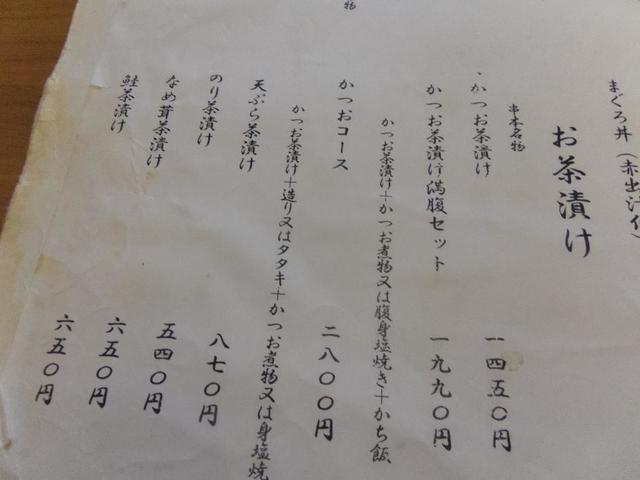 物
まぐろ丼（赤出汁付
お茶漬け
串本名物
、かつお茶漬け 一四五〇円
かつお茶漬け満腹セット 一九九〇円
かつお茶漬け＋かつお煮物又は腹身塩焼き＋かち飯
かつおコース 二八〇〇円
かつお茶漬け＋造り又はタタキ＋かつお煮物又は身塩焼
天ぷら茶漬け 八七〇円
のり茶漬け 五四〇円
なめ茸茶漬け 六五〇円
鮭茶漬け 六五〇円